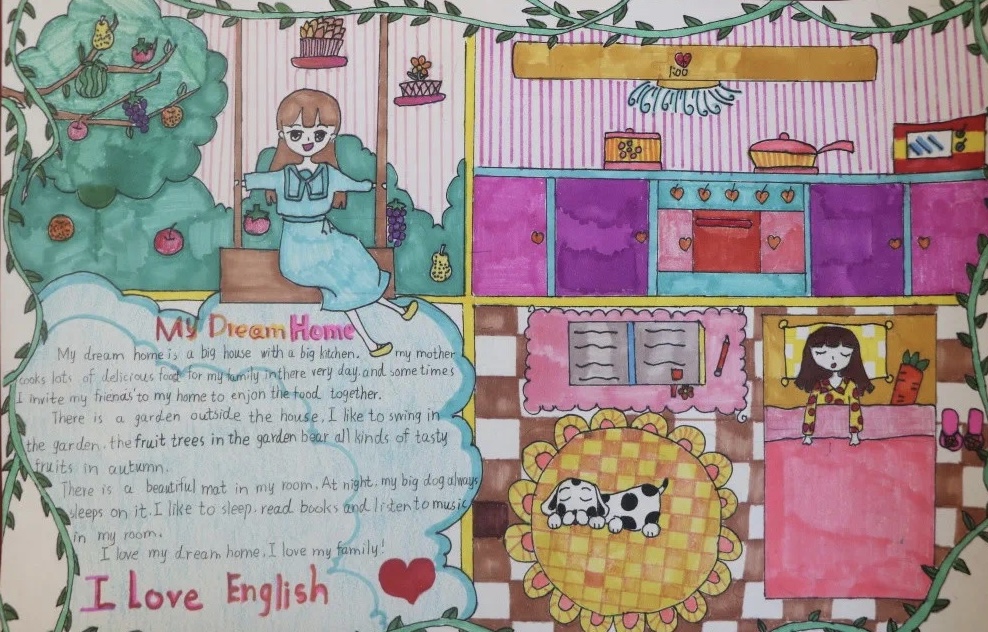 My Dream Home
My dream home is a big house with a big kitchen. my mother
cooks lots of delicious food for my family in there very day. and sometimes
I invite my friends to my home to enjon the food together.
There is a garden outside the house. I like to swing in
the garden. the fruit trees in the garden bear all kinds of tasty
fruits in autumn.
There is a beautiful mat in my room. At night, my big dog always
sleeps on it. I like to sleep. read books and listen to music
in my room.
I love my dream home. I love my family!
I Love English